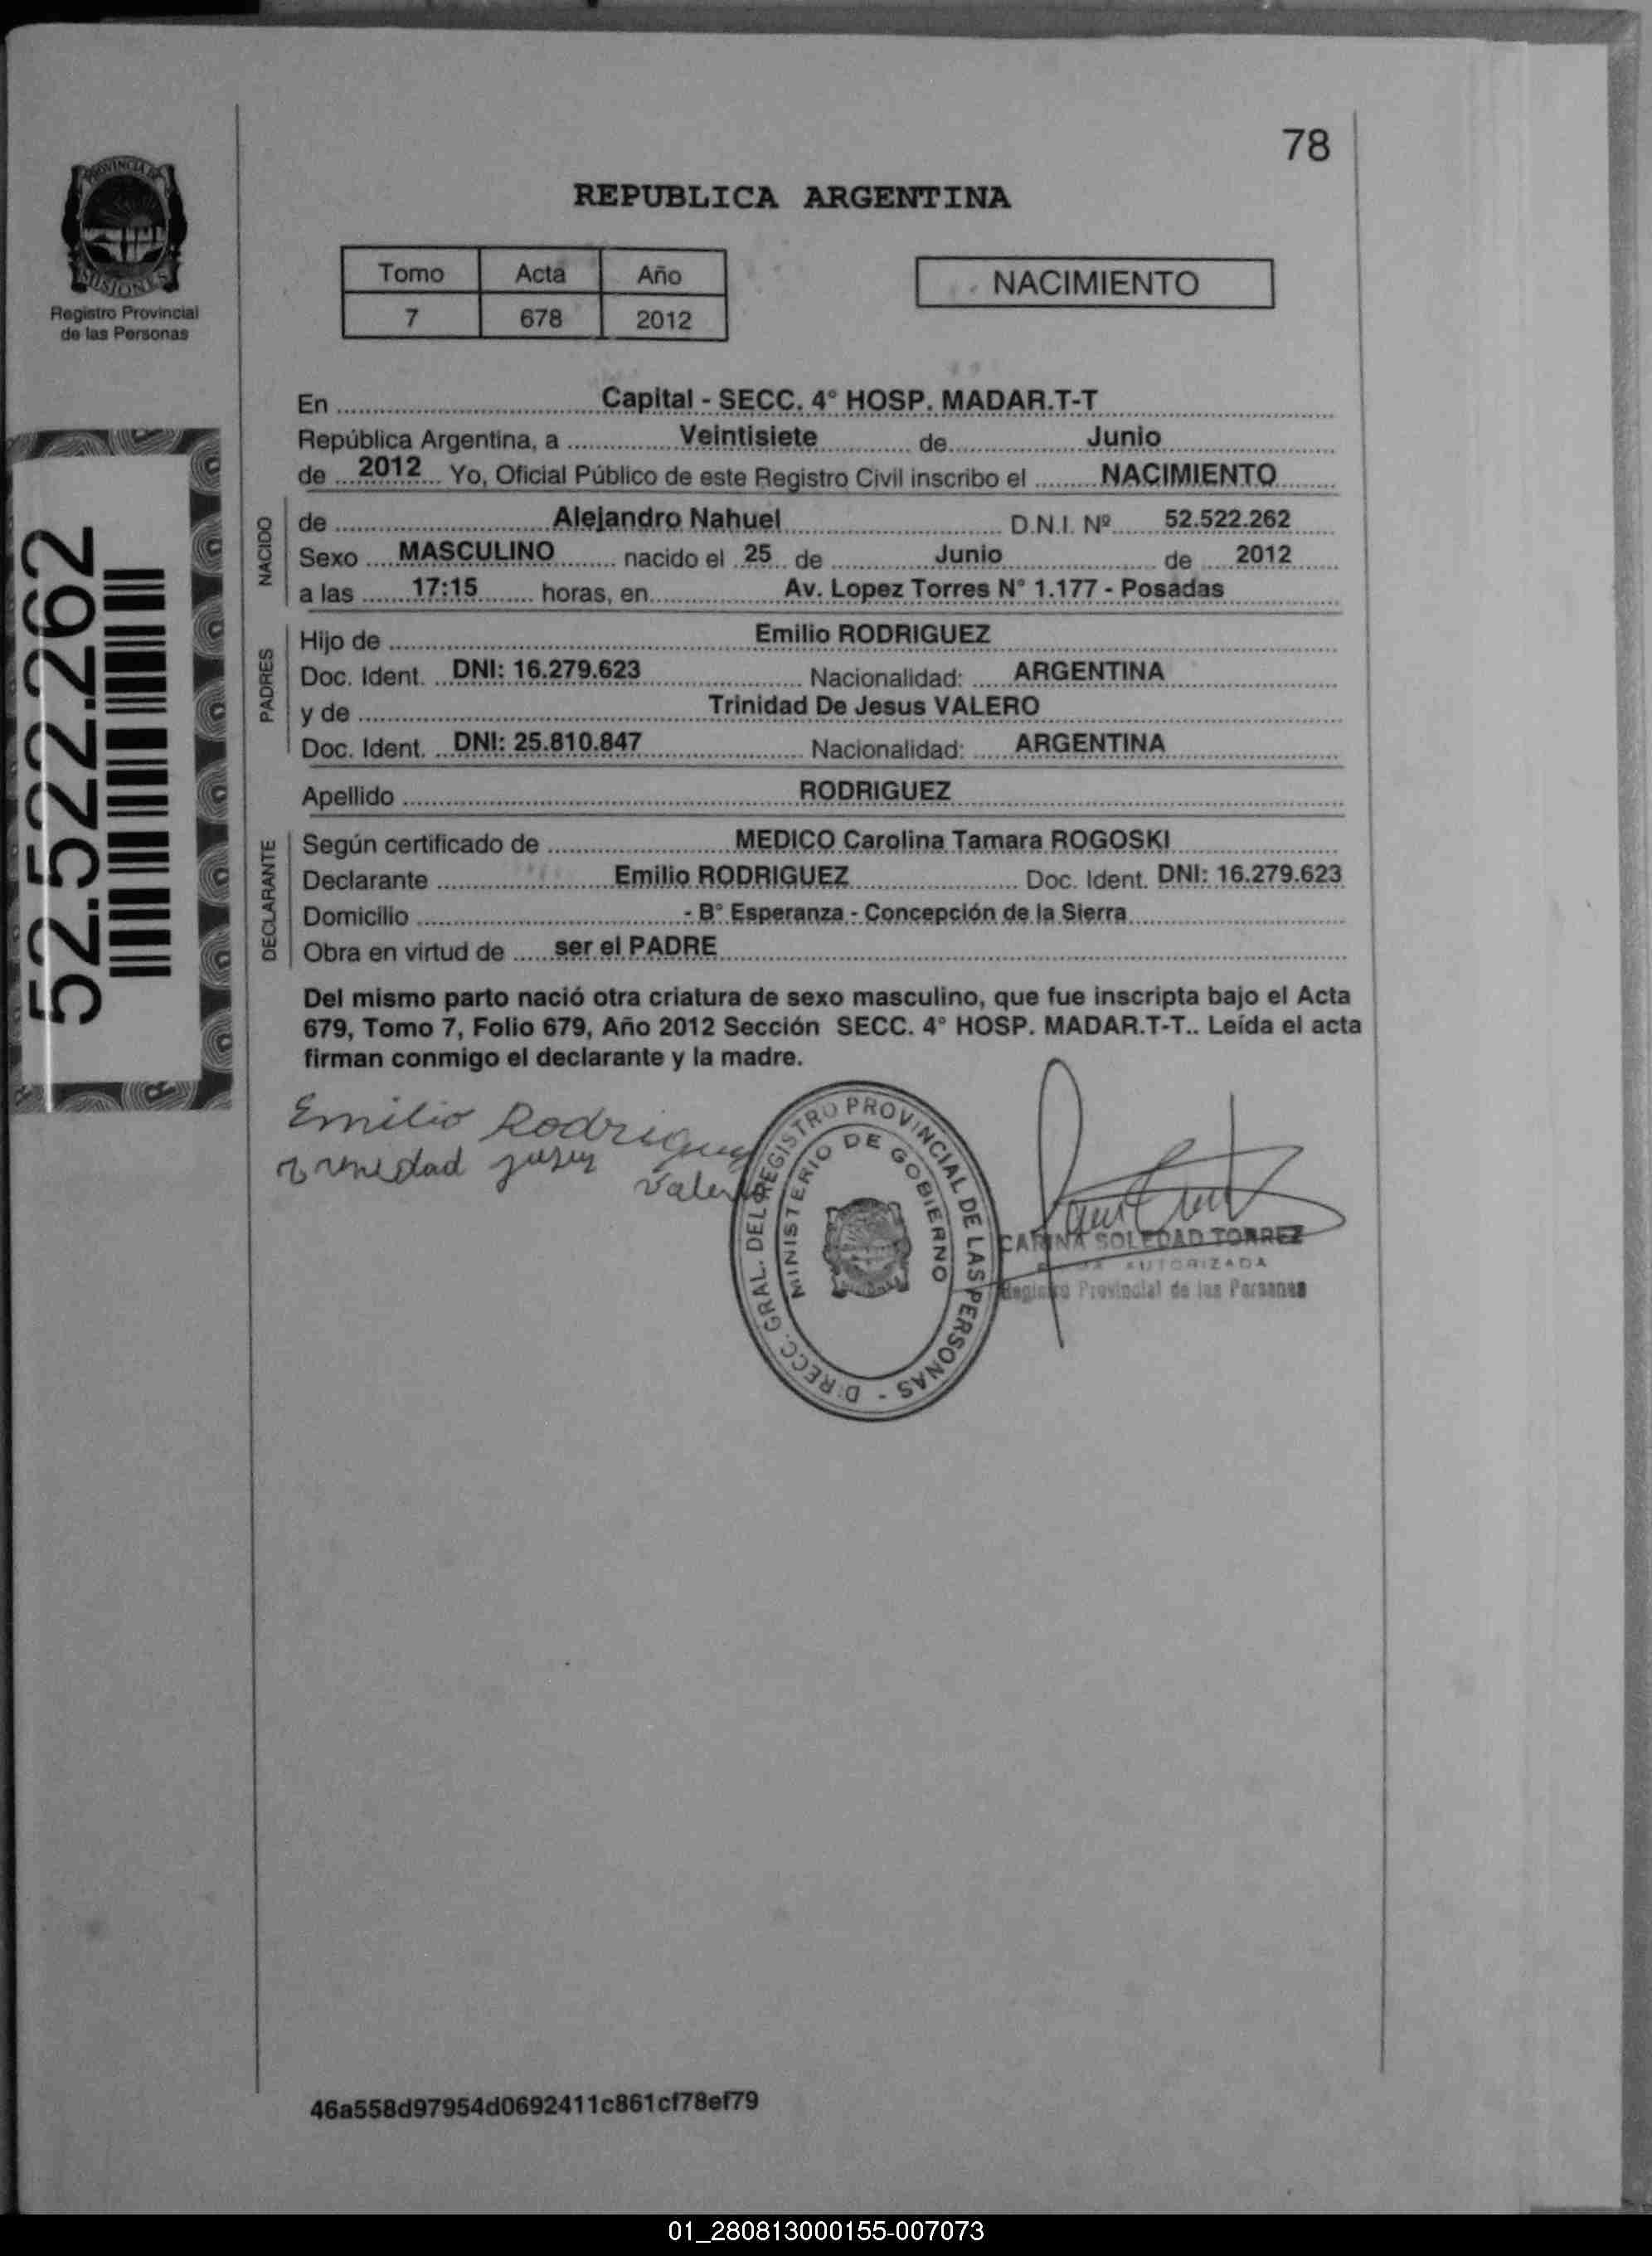 78
PROVINCIA DE
MISIONES
Registro Provincial
de las Personas
REPUBLICA ARGENTINA
Tomo Acta Año
7 678 2012
NACIMIENTO
52.522.262
En ... Capital - SECC. 4° HOSP. MADAR.T-T
República Argentina, a ... Veintisiete ... de ... Junio
de ... 2012 ... Yo, Oficial Público de este Registro Civil inscribo el ... NACIMIENTO
NACIDO
de ... Alejandro Nahuel ... D.N.I. Nº ... 52.522.262
Sexo ... MASCULINO ... nacido el 25 de ... Junio ... de ... 2012
a las ... 17:15 ... horas, en ... Av. Lopez Torres N° 1.177 - Posadas
PADRES
Hijo de ... Emilio RODRIGUEZ
Doc. Ident. ... DNI: 16.279.623 ... Nacionalidad: ... ARGENTINA
y de ... Trinidad De Jesus VALERO
Doc. Ident. ... DNI: 25.810.847 ... Nacionalidad: ... ARGENTINA
Apellido ... RODRIGUEZ
DECLARANTE
Según certificado de ... MEDICO Carolina Tamara ROGOSKI
Declarante ... Emilio RODRIGUEZ ... Doc. Ident. DNI: 16.279.623
Domicilio ... - B° Esperanza - Concepción de la Sierra
Obra en virtud de ... ser el PADRE
Del mismo parto nació otra criatura de sexo masculino, que fue inscripta bajo el Acta
679, Tomo 7, Folio 679, Año 2012 Sección SECC. 4° HOSP. MADAR.T-T.. Leída el acta
firman conmigo el declarante y la madre.
Emilio Rodriguez
Valero
DIRECC. GRAL. DEL REGISTRO PROVINCIAL DE LAS PERSONAS -
MINISTERIO DE GOBIERNO
CARINA SOLEDAD TORREZ
AUTORIZADA
Registro Provincial de las Personas
46a558d97954d0692411c861cf78ef79
01_280813000155-007073